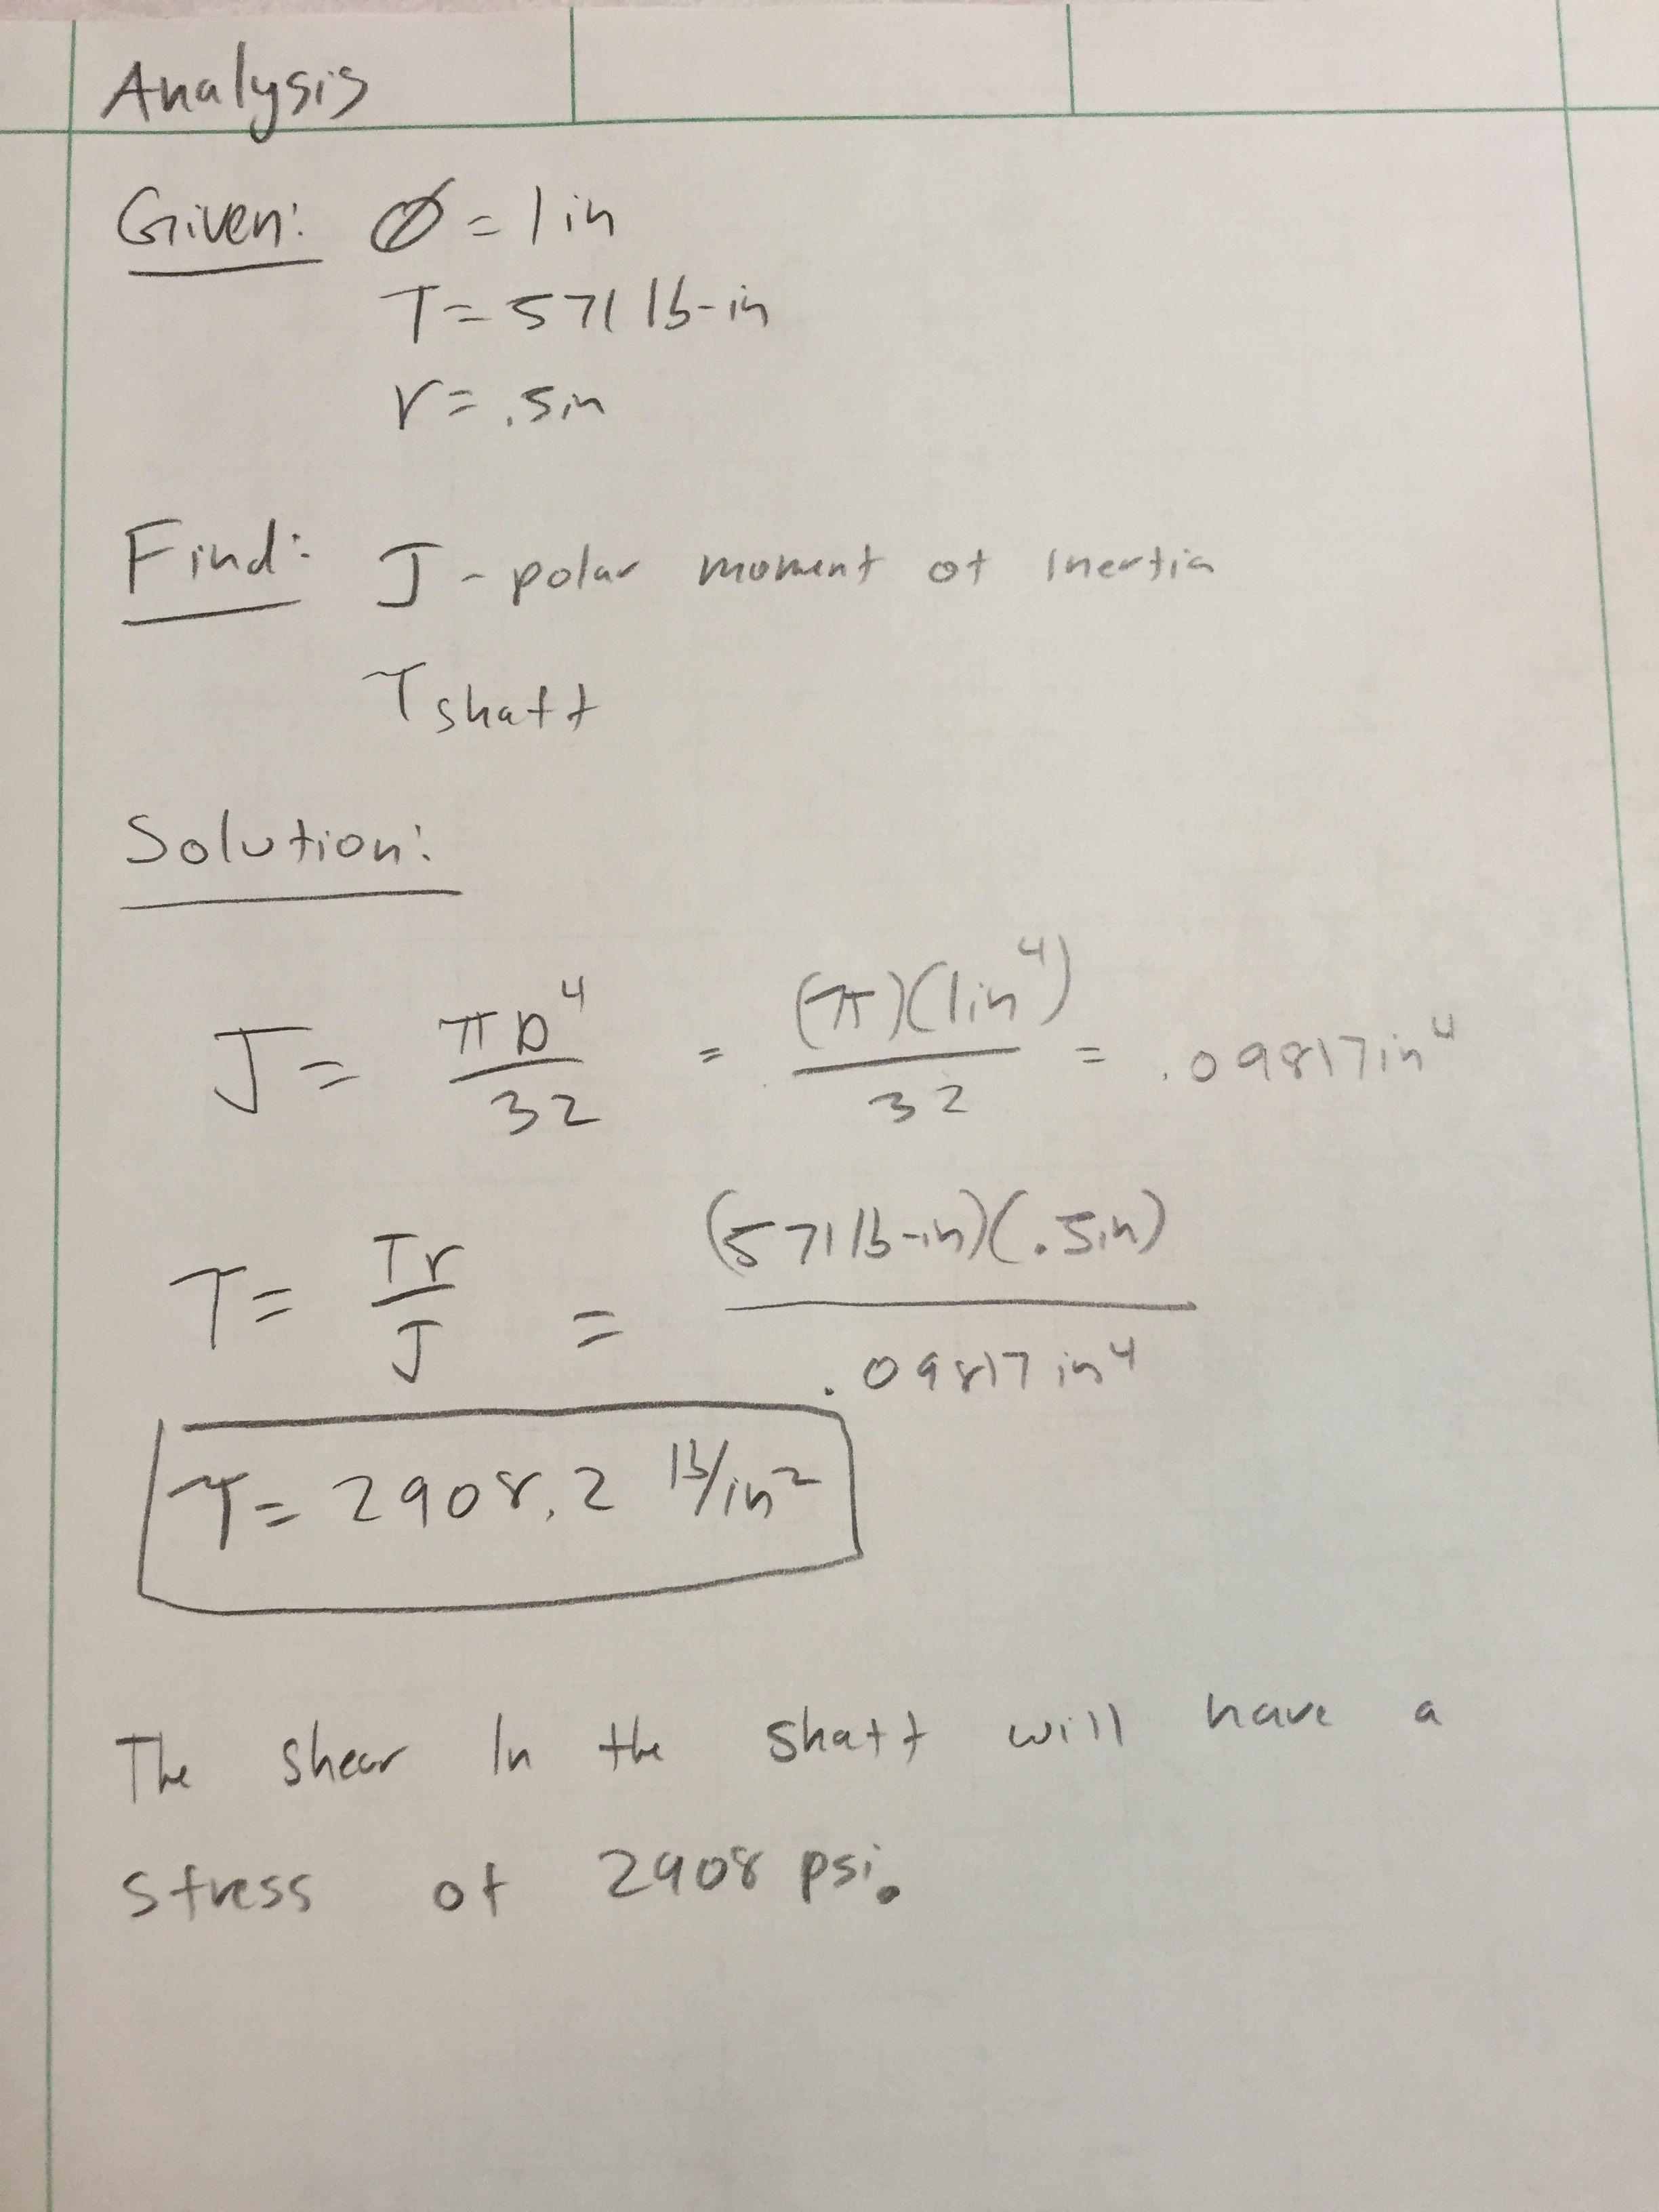 Analysis
Given: Ø = 1 in
T = 571 lb-in
r = .5in
Find: J - polar moment of Inertia
τ shaft
Solution:
J = πD⁴/32 = (π)(1in⁴)/32 = .09817in⁴
τ = Tr/J = (571 lb-in)(.5in)/.09817 in⁴
τ = 2908.2 lb/in²
The shear In the shaft will have a
stress of 2908 psi.